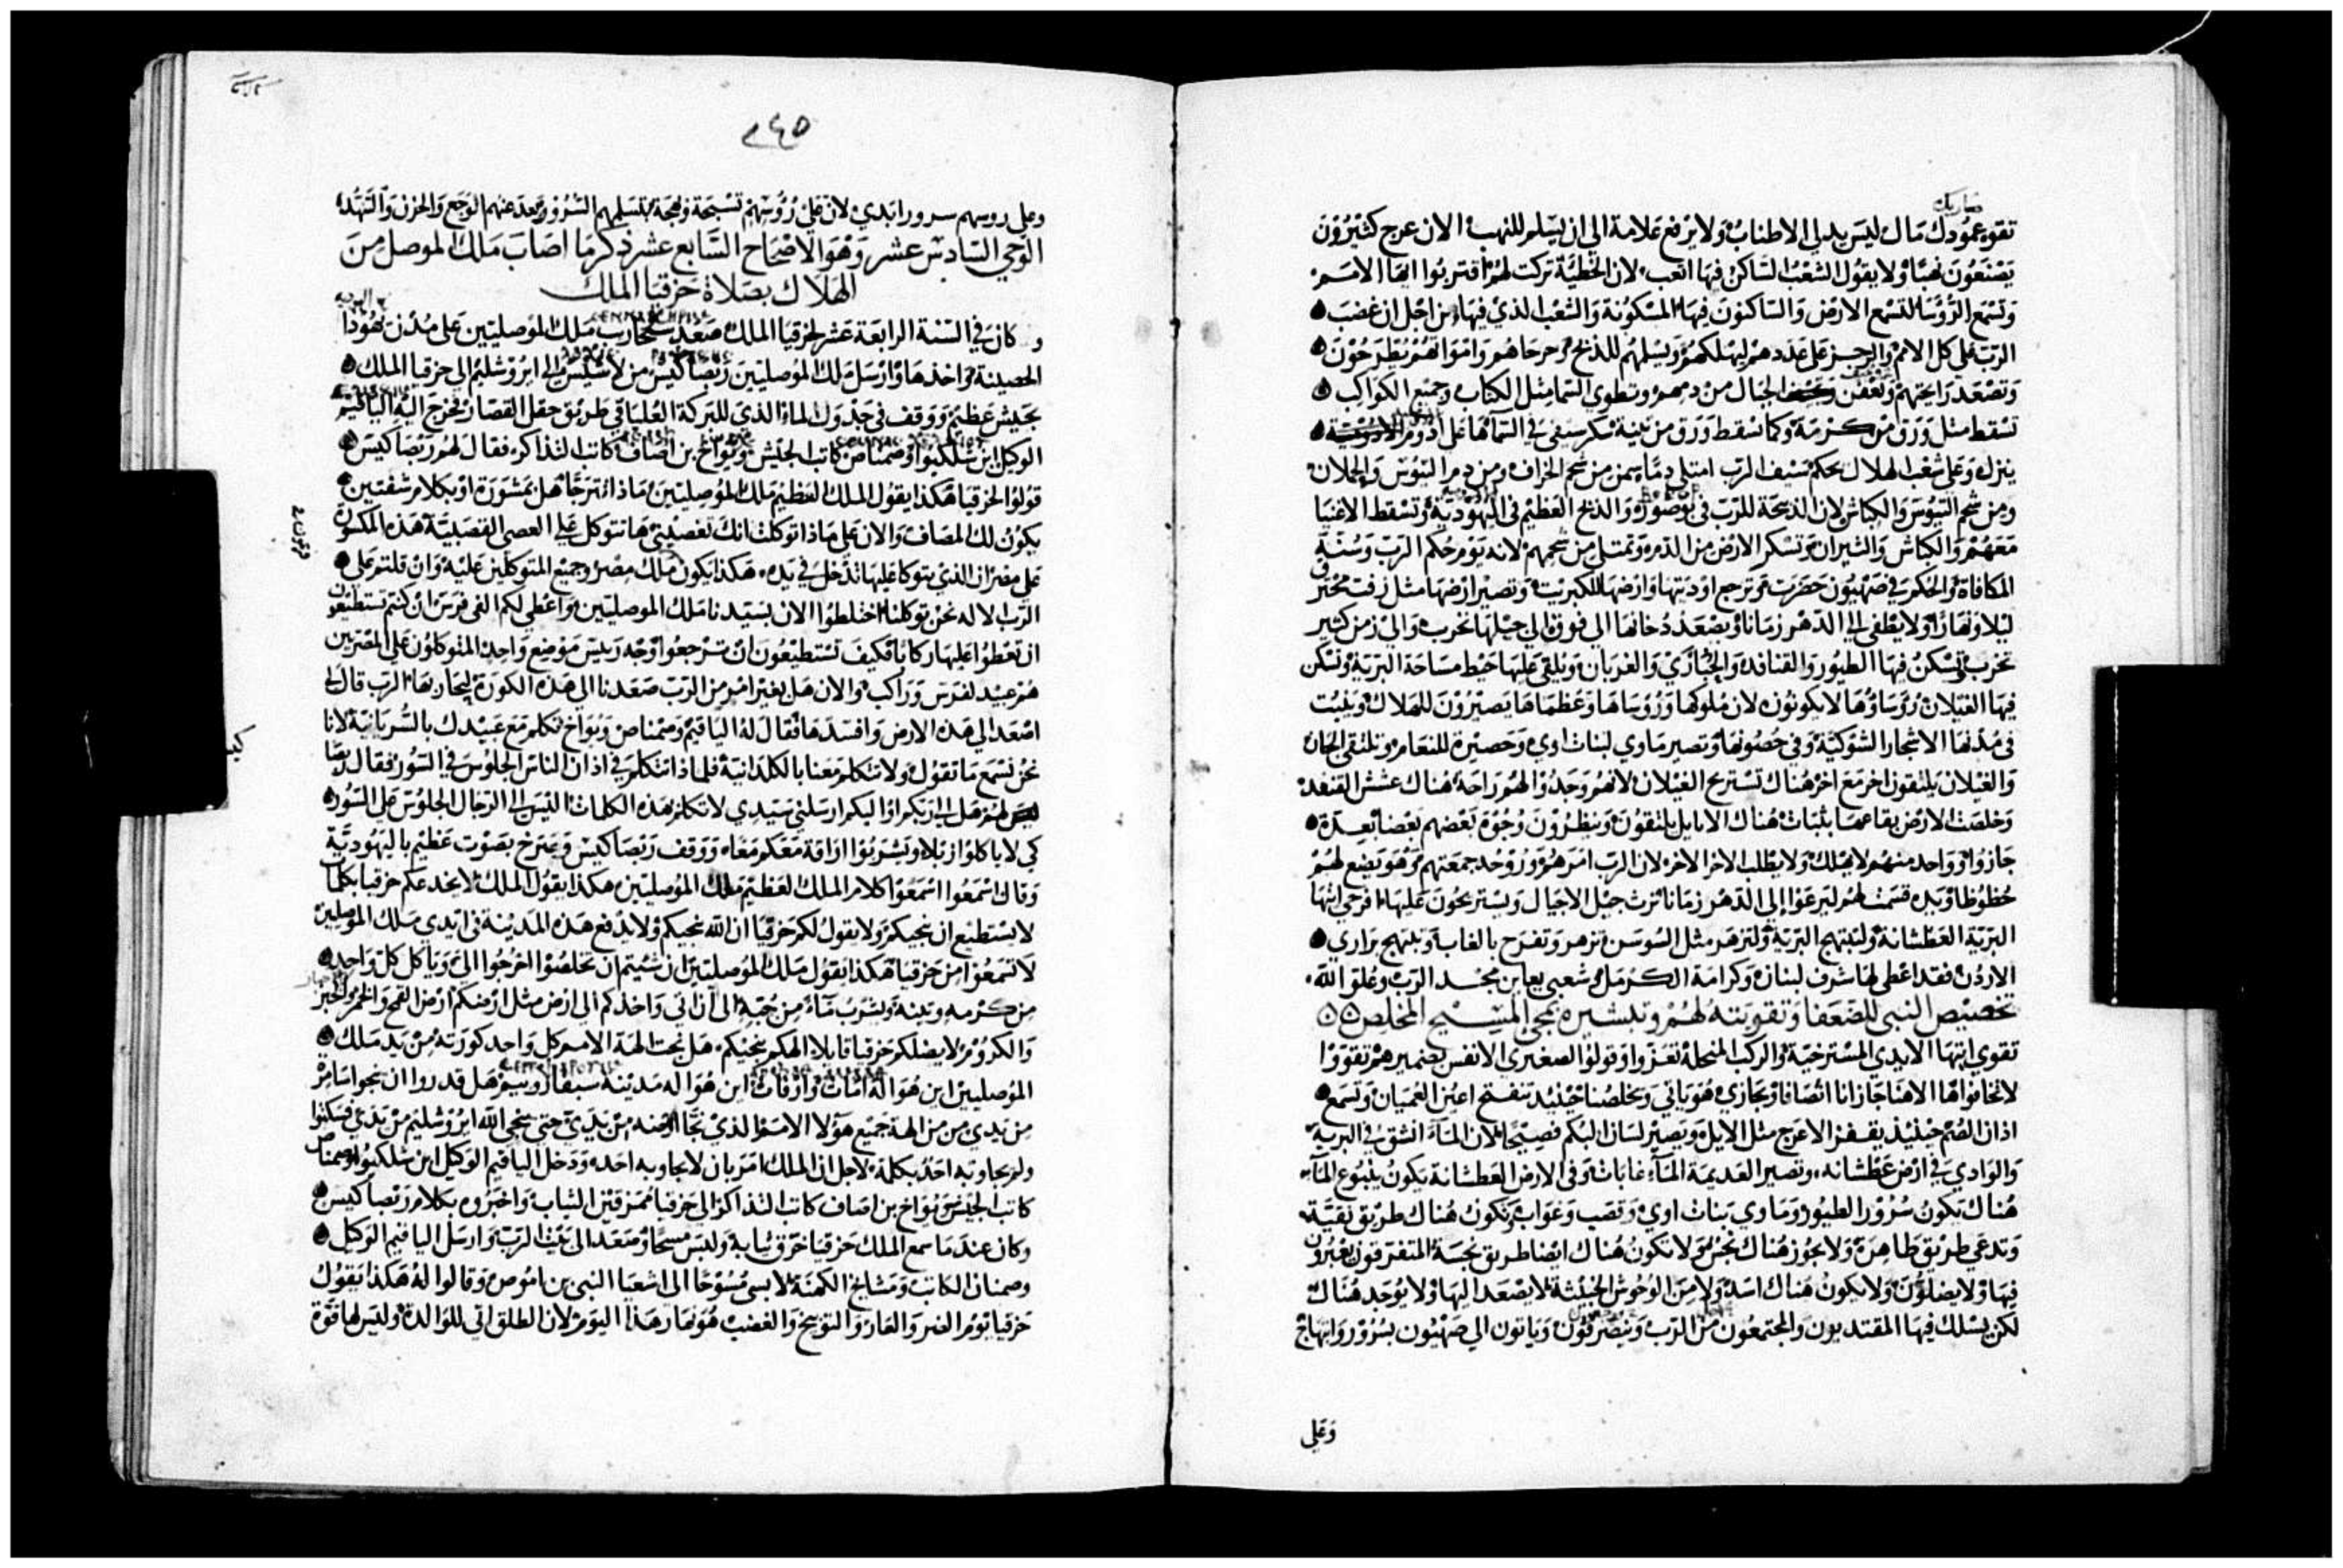 صاريك
تقوه عمودك مال ليس يدلي الاطناب ولا يرفع علامة الى ان يسلم للنهب الان عرج كثيرون
يصنعون نهبا ولا يقول الشعب الساكن فيها اتعب لان الخطية تركت لهم اقتربوا ايها الامم
وتسمع الرؤسا لتسمع الارض والساكنون فيها المسكونة والشعب الذي فيها من اجل ان غضب
الرب على كل الامم والرجز على عددهم ليهلكهم ويسلمهم للذبح وجرحاهم وامواتهم يطرحون
وتصعد رايحتهم وتعفن الجبال من دمهم وتطوي السما مثل الكتاب وجميع الكواكب
تسقط مثل ورق من كرمة وكما تسقط ورق من تينة سكر سيفي في السما ها على ادوم
ينزل وعلى شعب الهلاك بحكم سيف الرب امتلى دما سمن من شحم الخراف ومن دم التيوس والجملان
ومن شحم التيوس والكباش لان الذبيحة للرب في بوصور والذبح العظيم في اليهودية وتسقط الاغنيا
معهم والكباش والثيران وتسكر الارض من الدم وتمتلي من شحمهم لانه يوم حكم الرب وسنة
المكافاة والحكم في صهيون حضرت وترجع اوديتها وارضها للكبريت وتصير ارضها مثل زفت محترق
ليلا ونهارا ولا يطفى الى الدهر زمانا ويصعد دخانها الى فوق الى جبلها تخرب والى زمن كثير
تخرب وتسكن فيها الطيور والقنافد والحبارى والغربان ويلقى عليها خيط مساحة البرية وتسكن
فيها الغيلان رؤساؤها لا يكونون لان ملوكها ورؤساها وعظماها يصيرون للهلاك وينبت
في مدنها الاشجار الشوكية وفي حصونها وتصير ماوي لبنات اوي وحصيرة للنعام وتلتقي الجان
والغيلان يلتقون اخر مع اخر هناك تستريح الغيلان لانهم وجدوا لهم راحة هناك عشش القنفد
وخلصت الارض بقاعها بثبات هناك الايايل يلتقون وينظرون وجوه بعضهم بعضا بعدة
جازوا وواحد منهم لا يهلك ولا يطلب الاخر الاخر لان الرب امرهم وروحه جمعتهم وهو يضع لهم
حظوظا ويده قسمت لهم ليرعوا الى الدهر زمانا ترث جيل الاجيال ويستريحون عليها افرحي ايتها
البرية العطشانة ولتبتهج البرية ولتزهر مثل السوسن تزهر وتفرح بالغابة وتبتهج براري
الاردن فقد اعطي لها شرف لبنان وكرامة الكرمل وشعبي يعاين مجد الرب وعلو الله
تخصيص النبي للضعفا وتقويته لهم وتبشيره بمجي المسيح المخلص
تقوي ايتها الايدي المسترخية والركب المنحلة تعزوا وقولوا لصغيري الانفس بضميرهم تقووا
لا تخافوا ها الاهنا جازانا انصافا ويجازي هو ياتي ويخلصنا حينيذ تنفتح اعين العميان وتسمع
اذان الصم حينيذ يقفز الاعرج مثل الايل ويصير لسان البكم فصيحا لان الماء انشق في البرية
والوادي في ارض عطشانه وتصير العديمة الماء غابات وفي الارض العطشانة يكون ينبوع الماء
هناك يكون سرور الطيور وماوي بنات اوي وقصب وغواب ويكون هناك طريق نقية
وتدعي طريق طاهرة ولا يجوز هناك نجس ولا تكون هناك ايضا طريق نجسة المتفرقون يعبرون
فيها ولا يضلون ولا يكون هناك اسد ولا من الوحوش الخبيثة لا يصعد اليها ولا يوجد هناك
لكن يسلك فيها المفتديون والمجتمعون من الرب وينصرفون وياتون الى صهيون بسرور وابتهاج
وعلى
٢٤٥
وعلى روسهم سرور ابدي لان على رؤسهم تسبحة وبهجة تسلهم السرور وبعد عنهم الوجع والحزن والتنهد
الوحي السادس عشر وهو الاصحاح السابع عشر ذكر ما اصاب ملك الموصل من
الهلاك بصلاة حزقيا الملك
و كان في السنة الرابعة عشر لحزقيا الملك صعد سنحاريب ملك الموصليين على مدن يهودا
الحصينة واخذها وارسل ملك الموصليين ربصاكيس من لاشيس الى ايروشليم الى حزقيا الملك
بجيش عظيم ووقف في جدول الماء الذي للبركة العليا في طريق حقل القصار وخرج اليه الياقيم
الوكيل ابن شلكيوا وصمناص كاتب الجيش ويواخ بن اصاف كاتب التذاكر فقال لهم ربصاكيس
قولوا لحزقيا هكذا يقول الملك العظيم ملك الموصليين ماذا تترجا هل بمشورة او بكلام شفتين
يكون لك المصاف والان على ماذا توكلت انك تعصيني ها تتوكل على العصي القصبية هذه المكسورة
على مصر ان الذي يتوكا عليها تدخل في يده هكذا يكون ملك مصر وجميع المتوكلين عليه وان قلتم على
الرب الاله نحن توكلنا اختلطوا الان بسيدنا ملك الموصليين واعطي لكم الفي فرس ان كنتم تستطيعون
ان تعطوا عليها ركابا فكيف تستطيعون ان ترجعوا وجه رييس موضع واحد المتوكلون على المصريين
هم عبيد لفرس وراكب والان هل بغير امر من الرب صعدنا الى هذه الكورة لنحاربها الرب قال لي
اصعد الى هذه الارض وافسدها فقال له الياقيم وصمناص ويواخ تكلم مع عبيدك بالسريانية لانا
نحن نسمع ما تقول ولا تتكلم معنا بالكلدانية فلماذا تتكلم في اذان الناس الجلوس في السور فقال ربصا
لهم هل الى ربكم او اليكم ارسلني سيدي لاتكلم هذه الكلمات اليس الى الرجال الجلوس على السور
كي لا ياكلوا زبلا ويشربوا اراقة معكم معا ووقف ربصاكيس وصرخ بصوت عظيم باليهودية
وقال اسمعوا اسمعوا كلام الملك العظيم ملك الموصليين هكذا يقول الملك لا يخدعكم حزقيا بكلمات
لا يستطيع ان ينجيكم ولا يقول لكم حزقيا ان الله ينجيكم ولا يدفع هذه المدينة في ايدي ملك الموصليين
لا تسمعوا من حزقيا هكذا يقول ملك الموصليين ان شيتم ان تخلصوا اخرجوا الي وياكل كل واحد
من كرمه وتينه ويشرب ماء من جبه الى ان اتي واخذكم الى ارض مثل ارضكم ارض القمح والخمر والخبز
والكروم لا يضلكم حزقيا قايلا الهكم ينجيكم هل نجت الهة الامم كل واحد كورته من يد ملك
الموصليين اين هو اله امات وارفات اين هو اله مدينة سبفارويم هل قدروا ان ينجوا سامره
من يدي من من الهة جميع هولا الامم الذي نجا ارضه من يدي حتى ينجي الله ايروشليم من يدي فسكتوا
ولم يجاوبه احد بكلمة لاجل ان الملك امر بان لا يجاوبه احد ودخل الياقيم الوكيل ابن شلكيوا وصمناص
كاتب الجيش ويواخ بن اصاف كاتب التذاكر الى حزقيا ممزقين الثياب واخبروه بكلام ربصاكيس
وكان عند ما سمع الملك حزقيا خرق ثيابه ولبس مسحا وصعد الى بيت الرب وارسل الياقيم الوكيل
وصمناز الكاتب ومشايخ الكهنة لابسي مسوحا الى اشعيا النبي بن اموص وقالوا له هكذا يقول
حزقيا يوم الضر والعار والتوبيخ والغضب هو نهار هذا اليوم لان الطلق اتي للوالدة وليس لها قوة